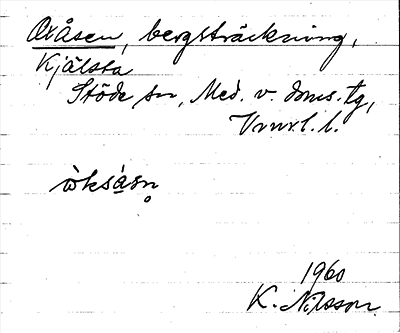 Oxåsen, bergsträckning,
Kjälsta
Stöde sn, Med. v. doms. tg,
Vnrl. l.
òksásn̥
1960
K. Nilsson.